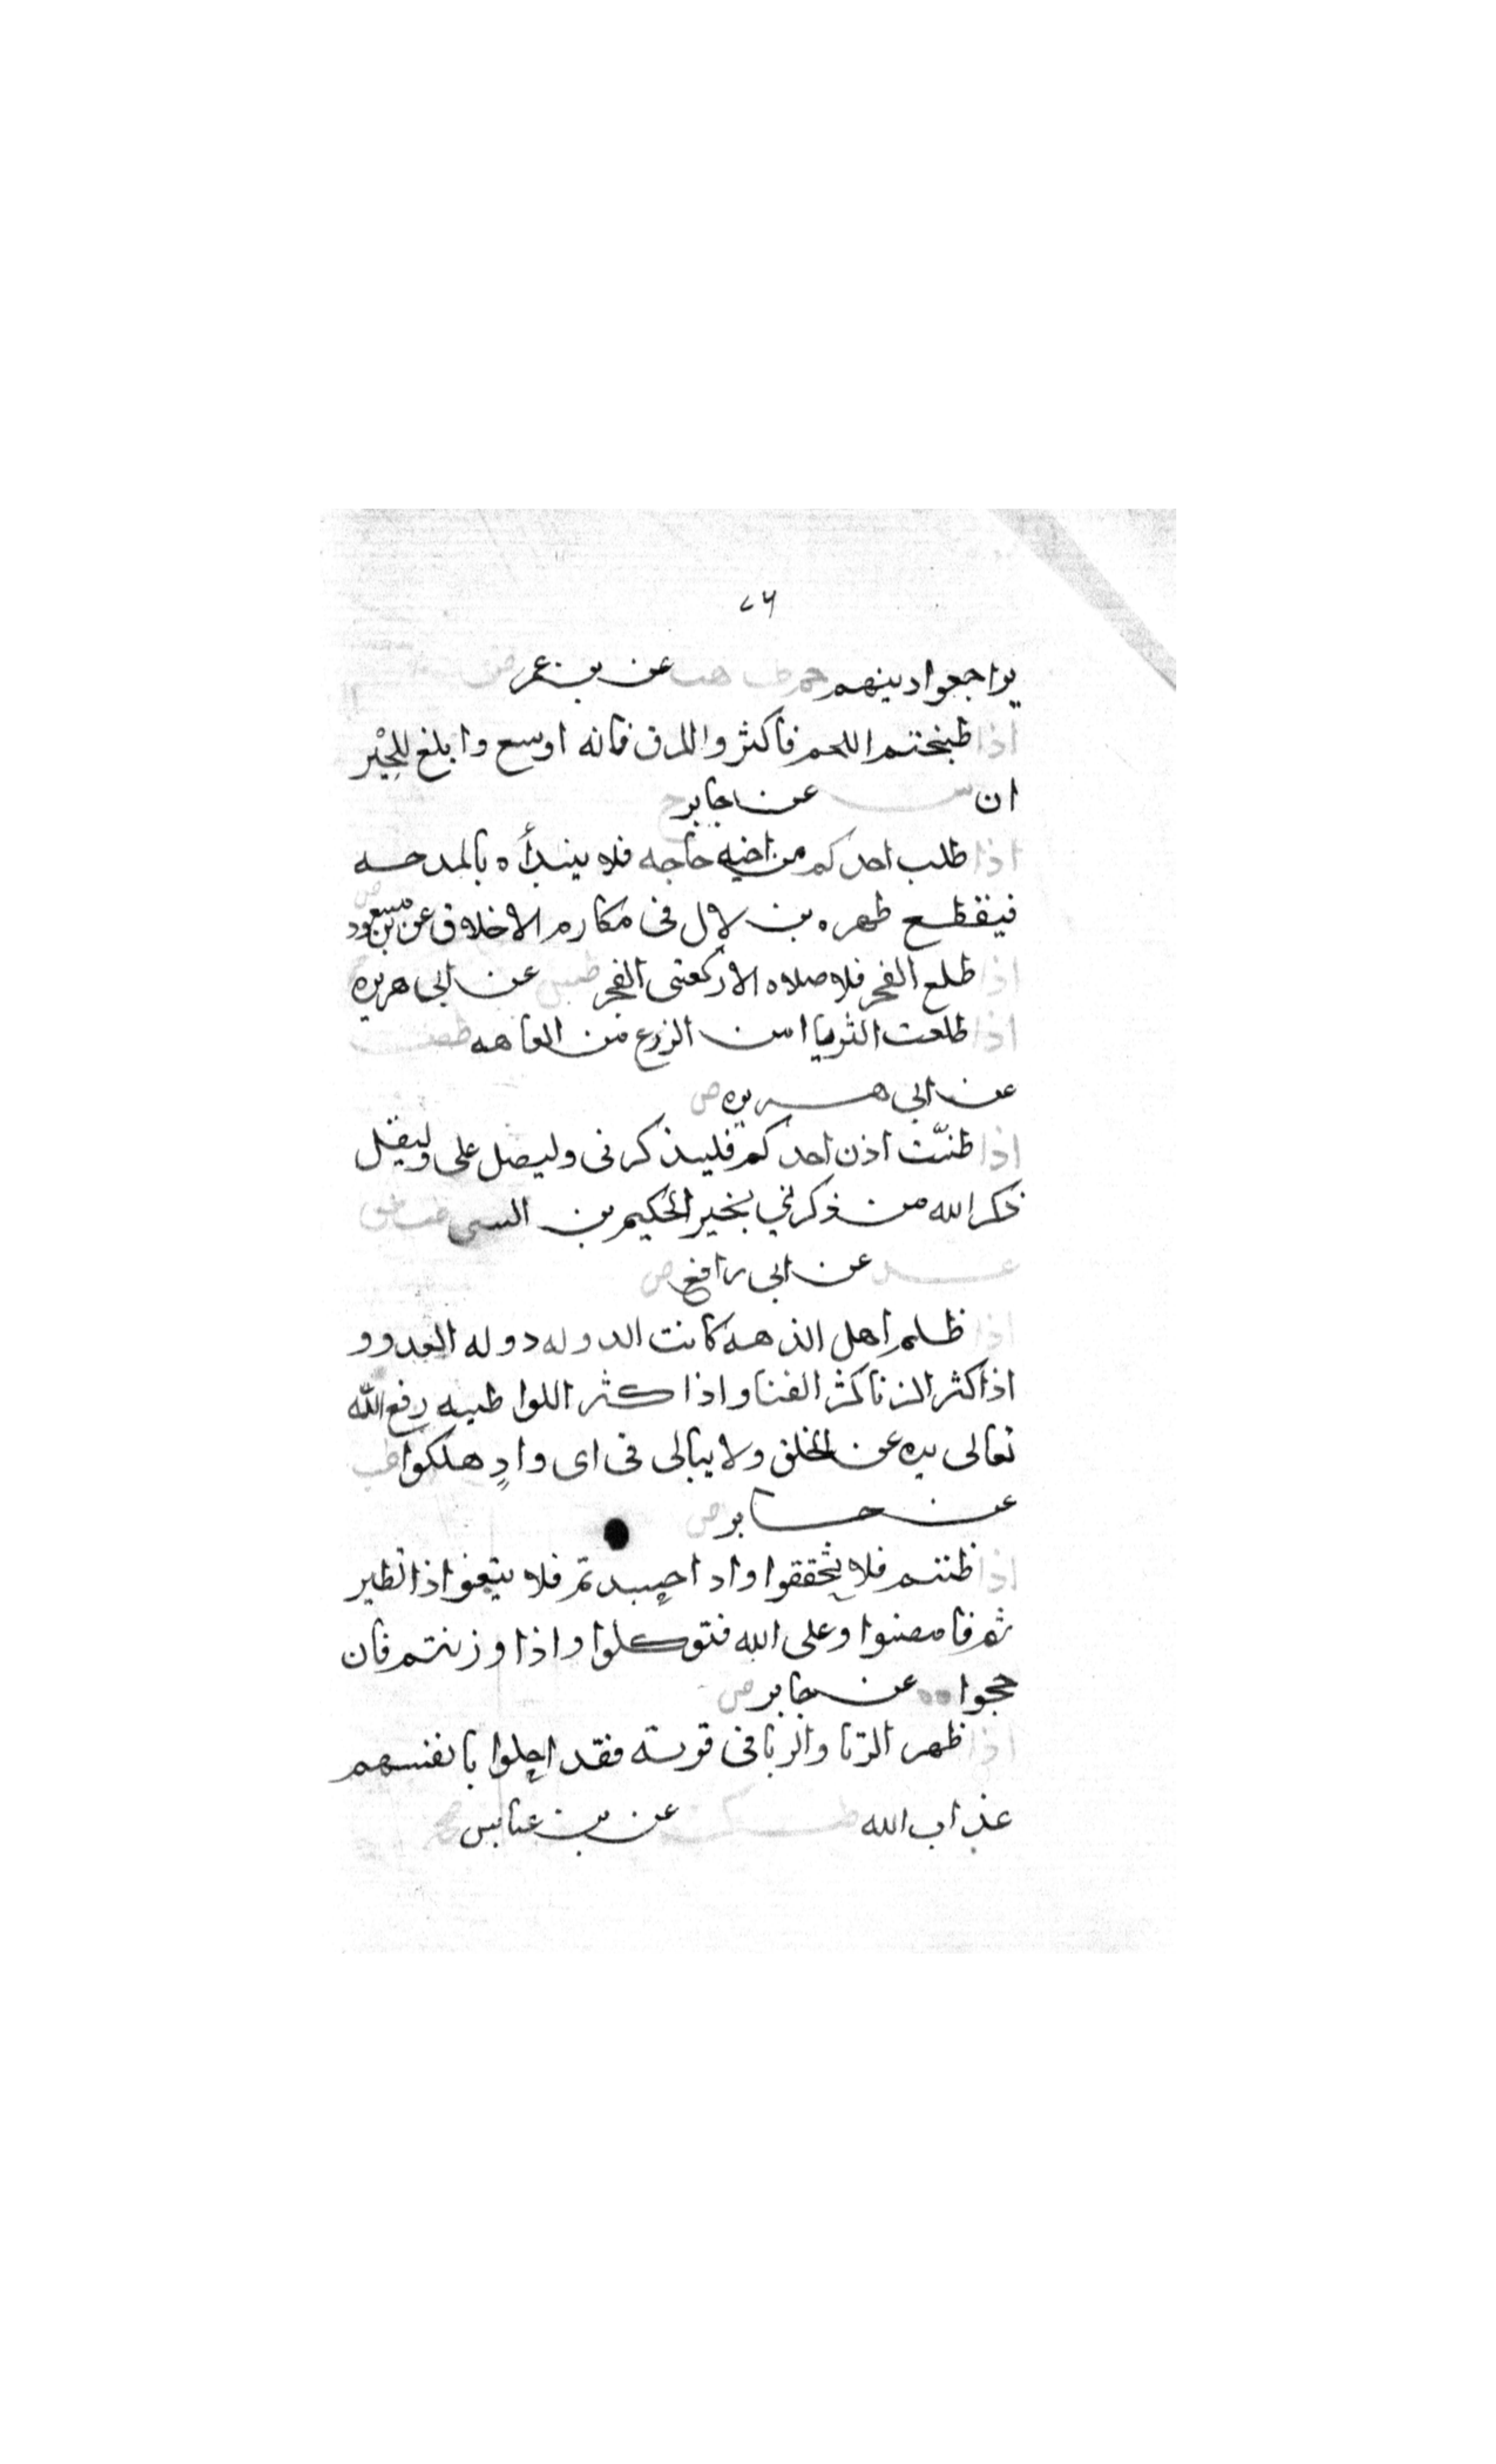 ٢٦
يراجعوا دينهم حم طب هب عن بن عمر
اذا طبختم اللحم فاكثروا المرق فانه اوسع وابلغ للجير
ان عن جابر ح
اذا طلب احدكم من اخيه حاجه فلا يبدأه بالمدحه
فيقطع ظهره بن لال فى مكارم الاخلاق عن بن مسعود
اذا طلع الفجر فلا صلاه الا ركعتى الفجر طس عن ابى هريره
اذا طلعت الثريا امن الزرع من العاهه طص
عن ابى هريره ض
اذا طنّت اذن احدكم فليذكرنى وليصل على وليقل
ذكر الله من ذكرني بخير الحكيم بن السى طب عق
عد عن ابى رافع ض
اذا ظلم اهل الذمه كانت الدوله دوله العدو و
اذا كثر الزنا كثر الفنا واذا كثر اللوا طيه رفع الله
تعالى يده عن الخلق ولا يبالى فى اى وادٍ هلكوا طب
عن جابر ض
اذا ظننتم فلا تحققوا واذا حسدتم فلا تبغوا اذا تطير
تم فامضوا وعلى الله فتوكلوا واذا وزنتم فان
حجوا ه عن جابر ض
اذا ظهر الزنا والربا فى قرية فقد احلوا بانفسهم
عذاب الله طب ك عن بن عباس صح